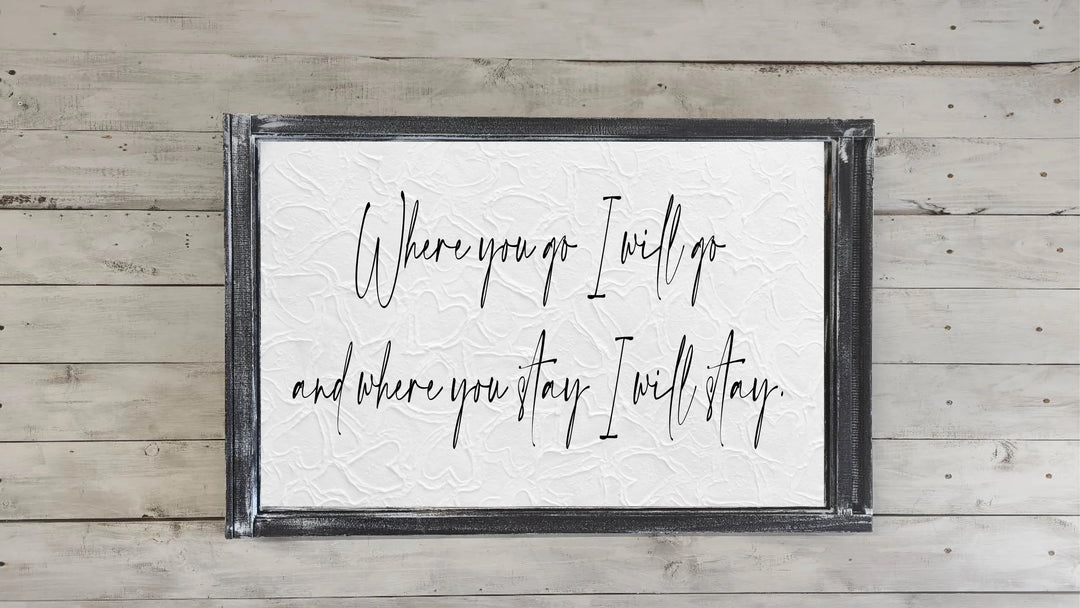 Where you go I will go
and where you stay I will stay.